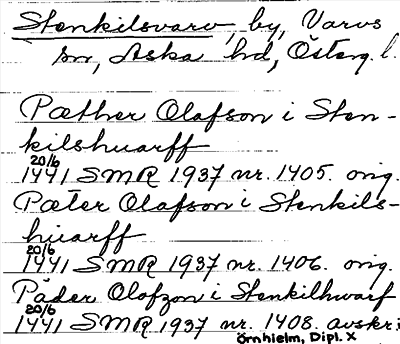 Stenkilsvarv, by, Varvs
sn, Aska hd, Österg. l.
Pæther Olafson i Sten-
kilshuarff
20/6
1441 SMR 1937 nr. 1405. orig.
Pæter Olafson i Stenkils-
huarff
20/6
1441 SMR 1937 nr. 1406. orig.
Päder Olofzon i Stenkilhwarf
20/6
1441 SMR 1937 nr. 1408. avskr:
Örnhielm, Dipl. X